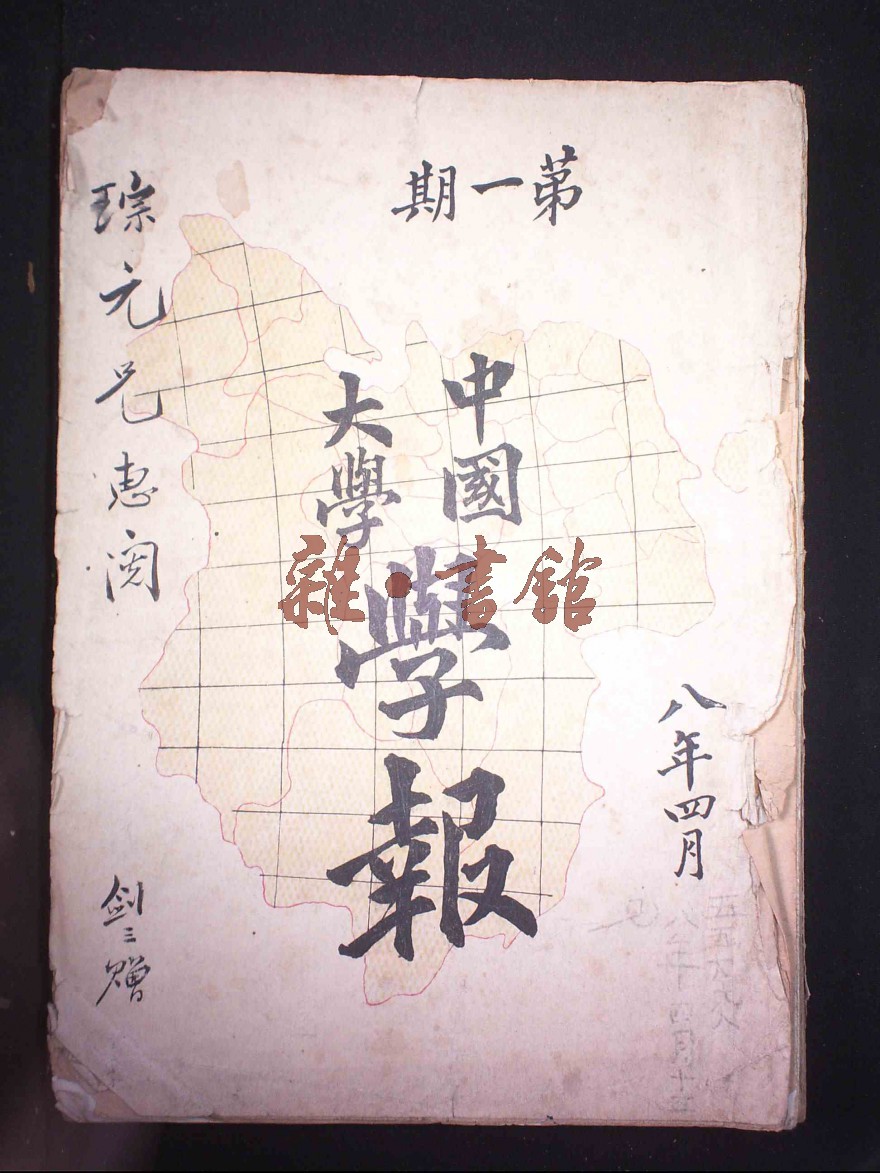 第一期
中國
大學
學報
八年四月
琮元兄惠閱
劍三贈
雜·書館